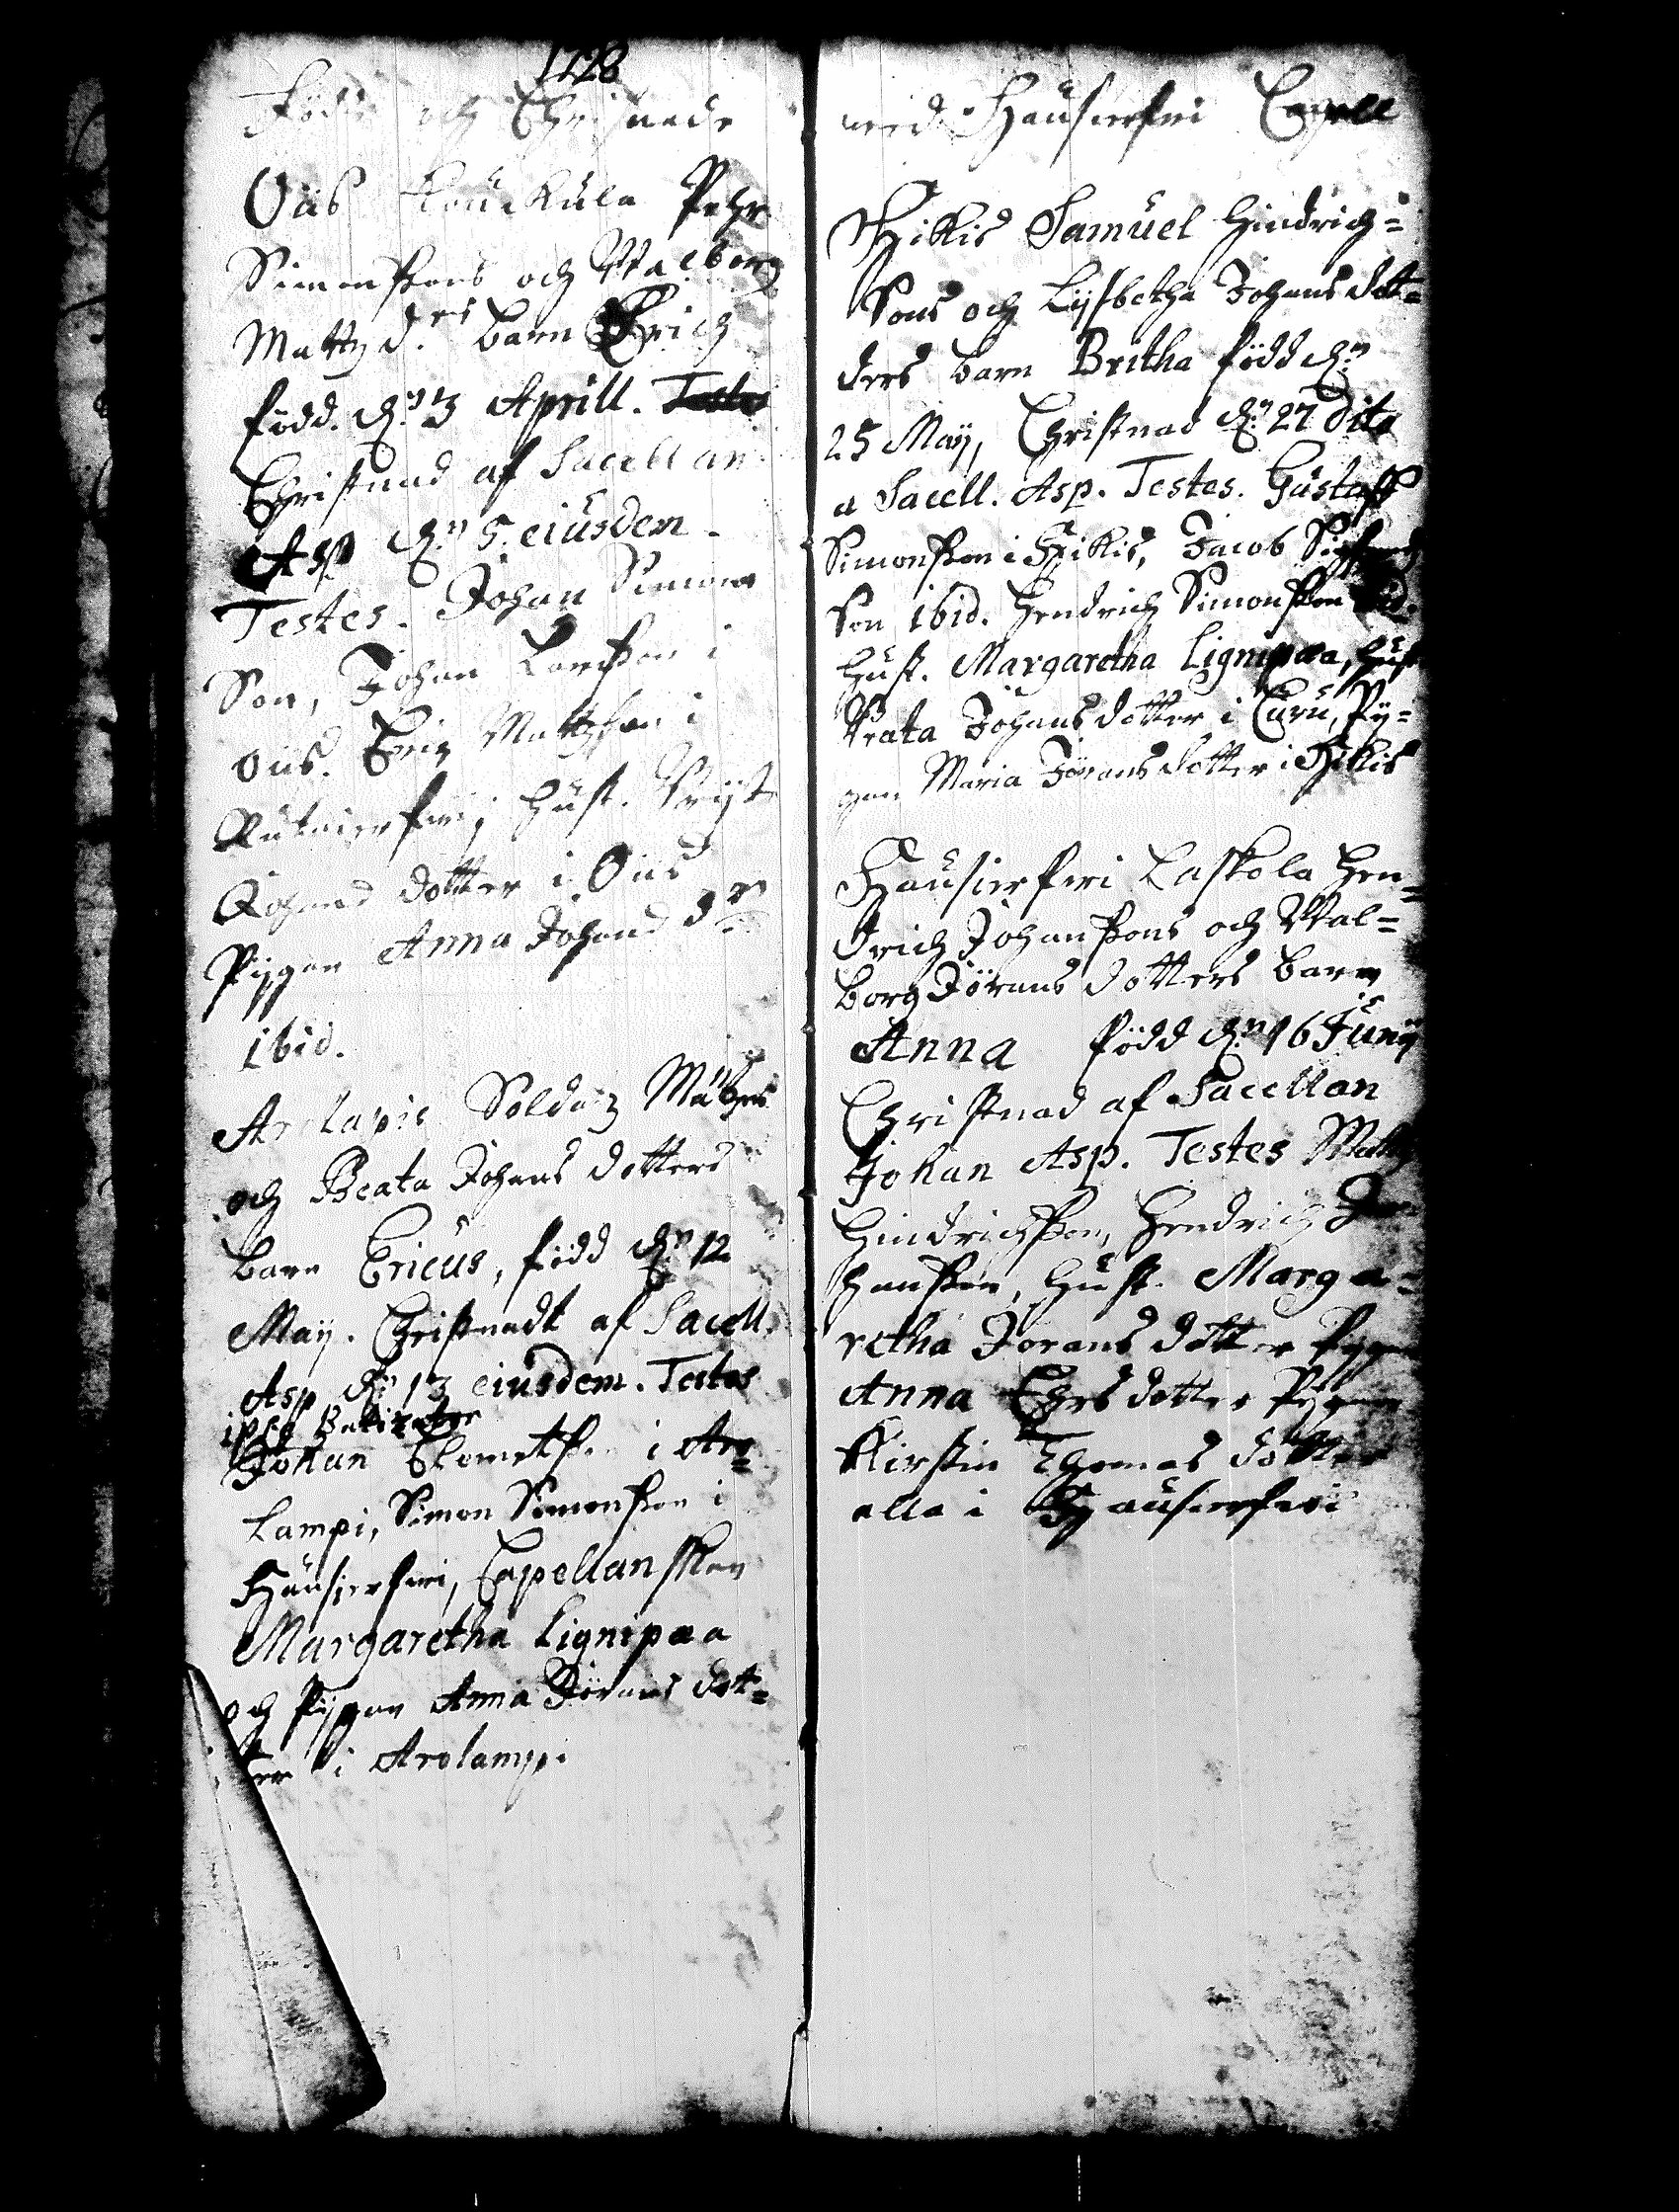 1728
Födde och Christnade
Oüs Pehr
Simonssons och Walborg
Mattz d:rs barn Erich
född. d:n 3 Aprill. Testes
Christnad af Sacellan
Asp d:n 5. eiusdem.
Testes. Johan Simons
Son, Johan Larsson i
Oüs. Eric Mattzson i
hust.
dotter i Oüs
Pygan Anna Johans d:r
ibid.
Soldatz
och Beata Johans dotters
barn Ericus, född d:n 12
Maÿ. Christnadt af Sacell.
Asp d:n 13 eiusdem. Testes
ipse
Johan i Aro=
Lampi, Simon Simonsson i
Hausierfwi, Capellanskan
Margaretha Lignipæa
och Pygan Anna Jörans dot=
ter i Arolampi
wid Hausierfwi Capell
Hikis Samuel Hindrich=
Sons och Lÿsbetha Johans dot=
ders barn Britha född d:n
25 Maÿ, Christnad d:n 27 dito
a Sacell. Asp. Testes. Gustaff
Simonsson i Hikis, Jacob
Son ibid. Hendrich Simonsson ibid.
Hust. Margaretha Lignipæa, Hust
Beata Johans dotter i Curu, Py=
gan Maria Jörans dotter i Hikis
Hausierfwi Laskola Hen=
drich Johanssons och Wal=
borg Jörans dotters barn
Anna född d:n 16 Junÿ
Christnad af Sacellan
Johan Asp. Testes Matts
Hindrichsson, Hendrich Jo
hansson, Hust. Marga=
retha Jörans dotter Pygan
Anna dotter Pygan
Kirstin Thomas dotter
alla i Hausierfwi